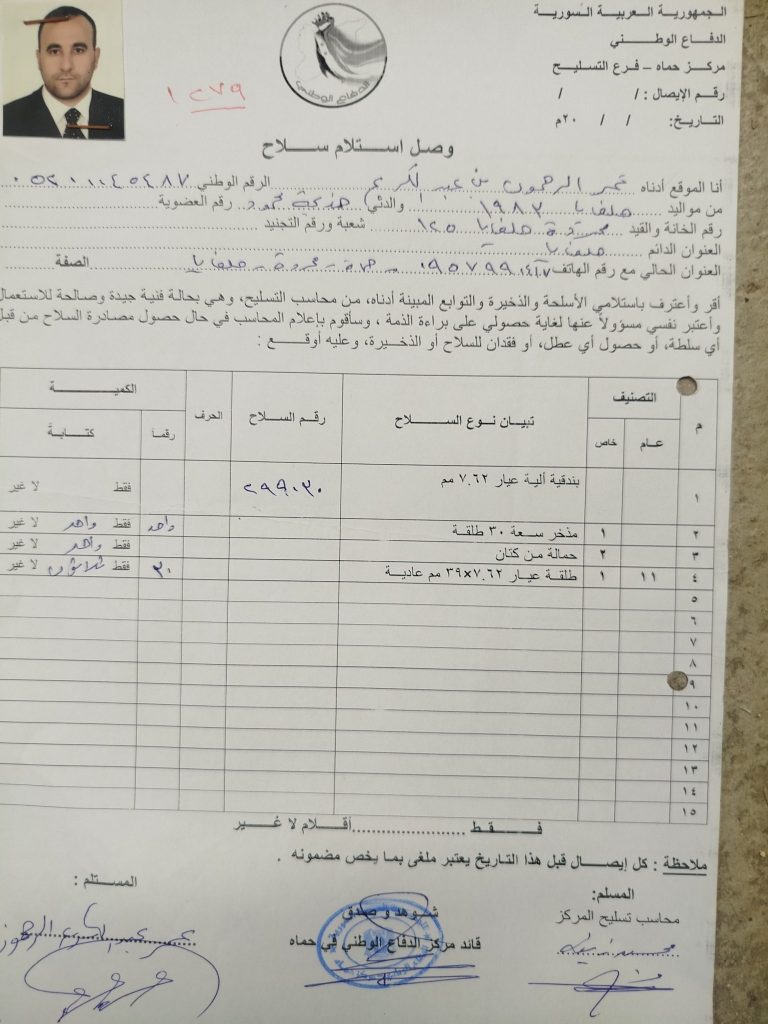 الجمهورية العربية السورية
الدفاع الوطني
مركز حماه – فرع التسليح
رقم الإيصال : / /
التاريخ: / / ٢٠م
الدفاع الوطني
١٢٧٩
وصل استلام سلاح
أنا الموقع أدناه عمر الرحمون بن عبد الكريم الرقم الوطني
من مواليد حلفايا ١٩٨٢ والدتي خديجة محمود رقم العضوية
رقم الخانة والقيد محردة حلفايا ١٢٥ شعبة ورقم التجنيد
العنوان الدائم حلفايا
العنوان الحالي مع رقم الهاتف حماة – محردة – حلفايا الصفة
أقر وأعترف باستلامي الأسلحة والذخيرة والتوابع المبينة أدناه، من محاسب التسليح، وهي بحالة فنية جيدة وصالحة للاستعمال
وأعتبر نفسي مسؤولاً عنها لغاية حصولي على براءة الذمة ، وسأقوم بإعلام المحاسب في حال حصول مصادرة السلاح من قبل
أي سلطة، أو حصول أي عطل، أو فقدان للسلاح أو الذخيرة، وعليه أوقع :
م التصنيف تبيان نوع السلاح رقم السلاح الحرف الكمية
عام خاص رقماً كتابةً
١ بندقية ألية عيار ٧.٦٢ مم ٢٩٩٠٣٠ فقط لا غير
٢ ١ مذخر سعة ٣٠ طلقة واحد فقط واحد لا غير
٣ ٢ حمالة من كتان فقط واحد لا غير
٤ ١١ ١ طلقة عيار ٧.٦٢×٣٩ مم عادية ٣٠ فقط ثلاثون لا غير
٥
٦
٧
٨
٩
١٠
١١
١٢
١٣
١٤
١٥
فقط ........................أقلام لا غير
ملاحظة : كل إيصال قبل هذا التاريخ يعتبر ملغى بما يخص مضمونه .
المسلم: المستلم :
محاسب تسليح المركز شوهد وصدق
قائد مركز الدفاع الوطني في حماه